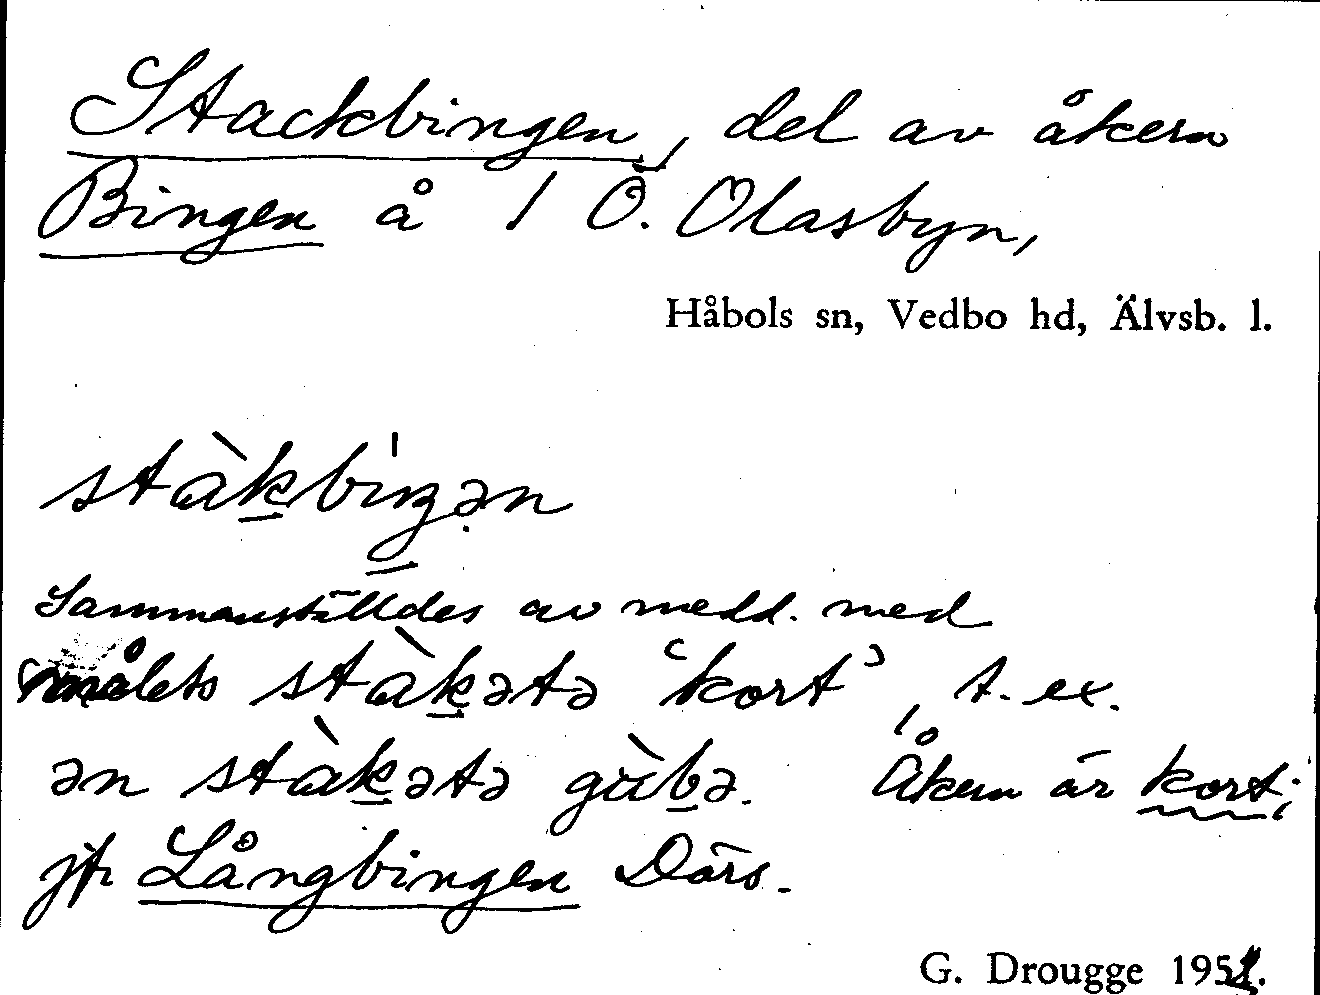 Stackbingen, del av åkern
Bingen å 1 Ö. Olasbyn,
Håbols sn, Vedbo hd, Älvsb. l.
stàkbiŋən
Sammanställdes av medd. med
målets stàkətə 'kort', t. ex.
ən stàkətə gùbə. Åkern är kort;
jfr Långbingen Därs.
G. Drougge 195